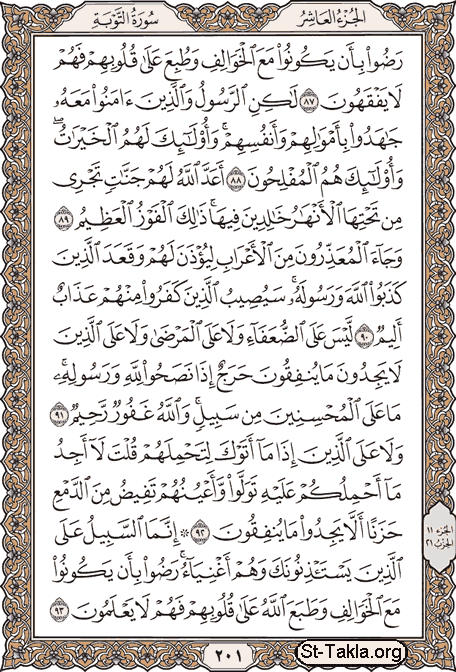 سُورَةُ التَّوۡبَةِ
الجُزۡءُ العَاشِرُ
رَضُوا۟ بِأَن يَكُونُوا۟ مَعَ ٱلۡخَوَالِفِ وَطُبِعَ عَلَىٰ قُلُوبِهِمۡ فَهُمۡ
لَا يَفۡقَهُونَ ٨٧ لَٰكِنِ ٱلرَّسُولُ وَٱلَّذِينَ ءَامَنُوا۟ مَعَهُۥ
جَٰهَدُوا۟ بِأَمۡوَٰلِهِمۡ وَأَنفُسِهِمۡۚ وَأُو۟لَٰٓئِكَ لَهُمُ ٱلۡخَيۡرَٰتُۖ
وَأُو۟لَٰٓئِكَ هُمُ ٱلۡمُفۡلِحُونَ ٨٨ أَعَدَّ ٱللَّهُ لَهُمۡ جَنَّٰتٖ تَجۡرِي
مِن تَحۡتِهَا ٱلۡأَنۡهَٰرُ خَٰلِدِينَ فِيهَاۚ ذَٰلِكَ ٱلۡفَوۡزُ ٱلۡعَظِيمُ ٨٩
وَجَآءَ ٱلۡمُعَذِّرُونَ مِنَ ٱلۡأَعۡرَابِ لِيُؤۡذَنَ لَهُمۡ وَقَعَدَ ٱلَّذِينَ
كَذَبُوا۟ ٱللَّهَ وَرَسُولَهُۥۚ سَيُصِيبُ ٱلَّذِينَ كَفَرُوا۟ مِنۡهُمۡ عَذَابٌ
أَلِيمٞ ٩٠ لَّيۡسَ عَلَى ٱلضُّعَفَآءِ وَلَا عَلَى ٱلۡمَرۡضَىٰ وَلَا عَلَى ٱلَّذِينَ
لَا يَجِدُونَ مَا يُنفِقُونَ حَرَجٌ إِذَا نَصَحُوا۟ لِلَّهِ وَرَسُولِهِۦۚ
مَا عَلَى ٱلۡمُحۡسِنِينَ مِن سَبِيلٖۚ وَٱللَّهُ غَفُورٞ رَّحِيمٞ ٩١
وَلَا عَلَى ٱلَّذِينَ إِذَا مَآ أَتَوۡكَ لِتَحۡمِلَهُمۡ قُلۡتَ لَآ أَجِدُ
مَآ أَحۡمِلُكُمۡ عَلَيۡهِ تَوَلَّوا۟ وَّأَعۡيُنُهُمۡ تَفِيضُ مِنَ ٱلدَّمۡعِ
حَزَنًا أَلَّا يَجِدُوا۟ مَا يُنفِقُونَ ٩٢ ۞ إِنَّمَا ٱلسَّبِيلُ عَلَى
ٱلَّذِينَ يَسۡتَـٔۡذِنُونَكَ وَهُمۡ أَغۡنِيَآءُۚ رَضُوا۟ بِأَن يَكُونُوا۟
مَعَ ٱلۡخَوَالِفِ وَطَبَعَ ٱللَّهُ عَلَىٰ قُلُوبِهِمۡ فَهُمۡ لَا يَعۡلَمُونَ ٩٣
الجزء ١١
الحزب ٢١
٢٠١
St-Takla.org